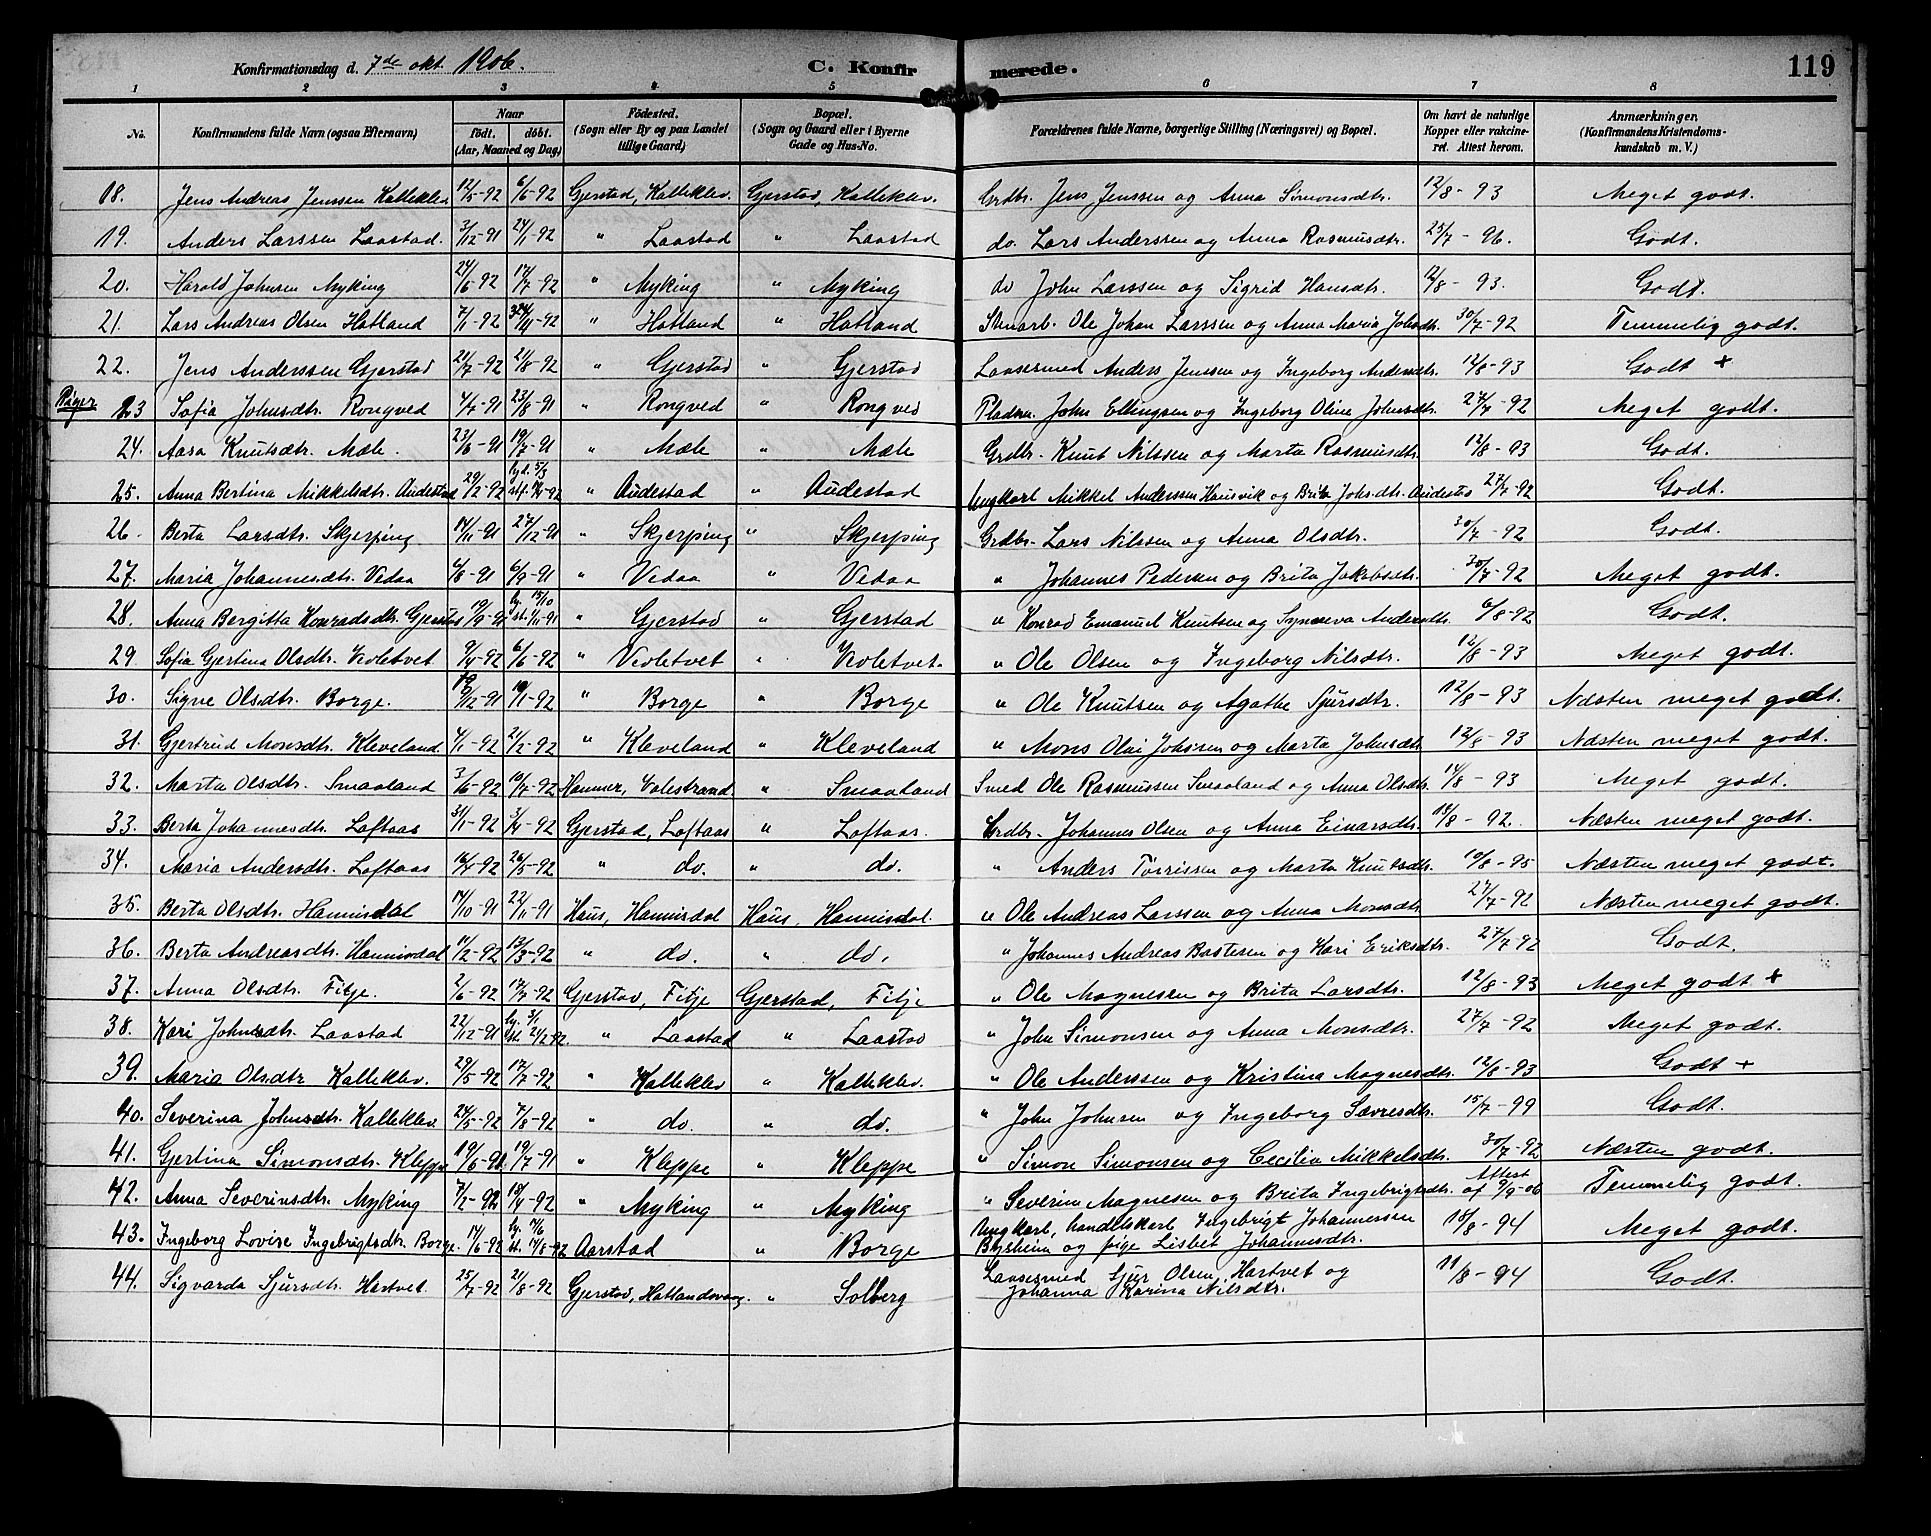 Konfirmationsdag d. 7de okt. 1906. C. Konfir merede. 119
1 2 3 4 5 6 7 8
No. Konfirmandens fulde Navn (ogsaa Efternavn) Naar født. døbt. (Aar, Maaned og Dag) Fødested. (Sogn eller By og paa Landet tillige Gaard) Bopæl. (Sogn og Gaard eller i Byerne Gade og Hus-No. Forældrenes fulde Navne, borgerlige Stilling (Næringsvei) og Bopæl. Om havt de naturlige Kopper eller vakcineret. Attest herom. Anmærkninger. (Konfirmandens Kristendomskundskab m. V.)
18. Jens Andreas Jenssen Kalleklev 12/5-92 6/6-92 Gjerstad, Kalleklev. Gjerstad, Kalleklev. Grdbr. Jens Jenssen og Anna Simonsdtr. 12/8-93 Meget godt.
19. Anders Larssen Laastad. 3/12-91 24/1-92 " Laastad " Laastad do. Lars Anderssen og Anna Rasmusdtr. 25/7-96. Godt.
20. Harald Johnsen Myking 24/6-92 17/7-92 " Myking " Myking do John Larssen og Sigrid Hansdtr. 12/8-93. Godt.
21. Lars Andreas Olsen Hatland 7/1-92 /4-92 " Hatland " Hatland Stenarb. Ole Johan Larssen og Anna Maria Johsdtr. 30/7-92 Temmelig godt.
22. Jens Anderssen Gjerstad 21/7-92 21/8-92 " Gjerstad " Gjerstad Laasesmed Anders Jenssen og Ingeborg Andersdtr. 12/8-93 Godt +
Piger 23 Sofia Johnsdtr. Rongved 4/7-91 23/8-91 " Rongved " Rongved Pladsm. John Ellingsen og Ingeborg Oline Johnsdtr. 27/7-92 Meget godt.
24. Aasa Knutsdtr. Mæle. 23/6-91 19/7-91 " Mæle " Mæle Grdbr. Knut Nilssen og Marta Rasmusdtr. 12/8-93 Godt.
25. Anna Bertina Mikkelsdtr. Audestad 29/2-92 hjd. 5/3 st. /4-92 " Audestad " Audestad Ungkarl Mikkel Anderssen Hausvik og Brita Johsdtr. Audestad 27/7-92 Godt.
26. Berta Larsdtr. Skjerping 14/11-91 27/12-91 " Skjerping " Skjerping Grdbr. Lars Nilssen og Anna Olsdtr. 30/7-92 Godt.
27. Maria Johannesdtr. Vedaa 4/8-91 6/9-91 " Vedaa " Vedaa " Johannes Pedersen og Brita Jakobsdtr. 30/7-92 Meget godt.
28. Anna Bergitta Konradsdtr. Gjerstad 19/9-91 hj. 15/10 st. 1/11-91 " Gjerstad " Gjerstad " Konrad Emanuel Knutsen og Synneva Andersdtr. 6/8-92 Godt.
29. Sofia Gjertina Olsdtr. Violetvet 9/4-92 6/6-92 " Violetvet " Violetvet. " Ole Olsen og Ingeborg Nilsdtr. 12/8-93 Meget godt.
30. Signe Olsdtr. Borge. 9/12-91 10/1-92 " Borge " Borge " Ole Knutsen og Agathe Sjursdtr. 12/8-93 Næsten meget godt.
31. Gjertrud Monsdtr. Kleveland 4/1-92 21/2-92 " Kleveland " Kleveland " Mons Olai Johnsen og Marta Johnsdtr. 12/8-93 Næsten meget godt.
32. Marta Olsdtr. Smaaland 3/6-92 10/7-92 Hammer, Valestrand. " Smaaland Smed Ole Rasmussen Smaaland og Anna Olsdtr. 14/8-93 Meget godt.
33. Berta Johannesdtr. Loftaas 31/1-92 3/4-92 Gjerstad, Loftaas " Loftaas. Grdbr. Johannes Olsen og Anna Einarsdtr. 14/8-92. Næsten meget godt.
34. Maria Andersdtr. Loftaas 16/4-92 26/5-92 " do. " do. " Anders Torrissen og Marta Knutsdtr. 10/8-95 Næsten meget godt.
35. Berta Olsdtr. Hannisdal 14/10-91 22/11-91 Haus, Hannisdal Haus, Hannisdal. " Ole Andreas Larssen og Anna Monsdtr. 27/7-92 Næsten meget godt.
36. Berta Andreasdtr. Hannisdal 11/2-92 13/3-92 " do. " do. " Johannes Andreas Bastesen og Kari Eriksdtr. 27/7-92 Godt.
37. Anna Olsdtr. Fitje. 2/6-92 17/7-92 Gjerstad, Fitje Gjerstad, Fitje " Ole Magnesen og Brita Larsdtr. 12/8-93 Meget godt +
38. Kari Johnsdtr. Laastad 22/12-91 hj. 3/1 st. 21/2-92. " Laastad " Laastad " John Simonsen og Anna Monsdtr. 27/7-92 Meget godt.
39. Maria Olsdtr Kalleklev. 29/5-92 17/7-92 " Kalleklev " Kalleklev. " Ole Anderssen og Kristina Magnesdtr. 12/8-93 Godt +
40. Severina Johnsdtr. Kalleklev 24/5-92 7/8-92 " do. " do. " John Johnsen og Ingeborg Savresdtr. 15/7-99 Godt.
41. Gjertina Simonsdtr. Kleppe 19/6-91. 19/7-91 " Kleppe " Kleppe " Simon Simonsen og Cecilia Mikkelsdtr. 30/7-92 Næsten godt.
42. Anna Severinsdtr. Myking 7/2-92 18/4-92 " Myking " Myking " Severin Magnesen og Brita Ingebrigtsdtr. Attest af 9/9-06 Temmelig godt.
43. Ingeborg Lovise Ingebrigtsdtr. Borge. 14/6-92 hj. /6 st. 14/8-92 Aarstad " Borge Ungkarl, handelskarl Ingebrigt Johannessen
Bysheim og pige Lisbet Johannesdtr. 18/8-94 Meget godt.
44. Sigvarda Sjursdtr. Hartvet. 25/7-92 21/8-92 Gjerstad, Hatlandsvaag. " Solberg Laasesmed Sjur Olsen Hartvet og
Johanna Karina Nilsdtr. 11/8-94 Godt.